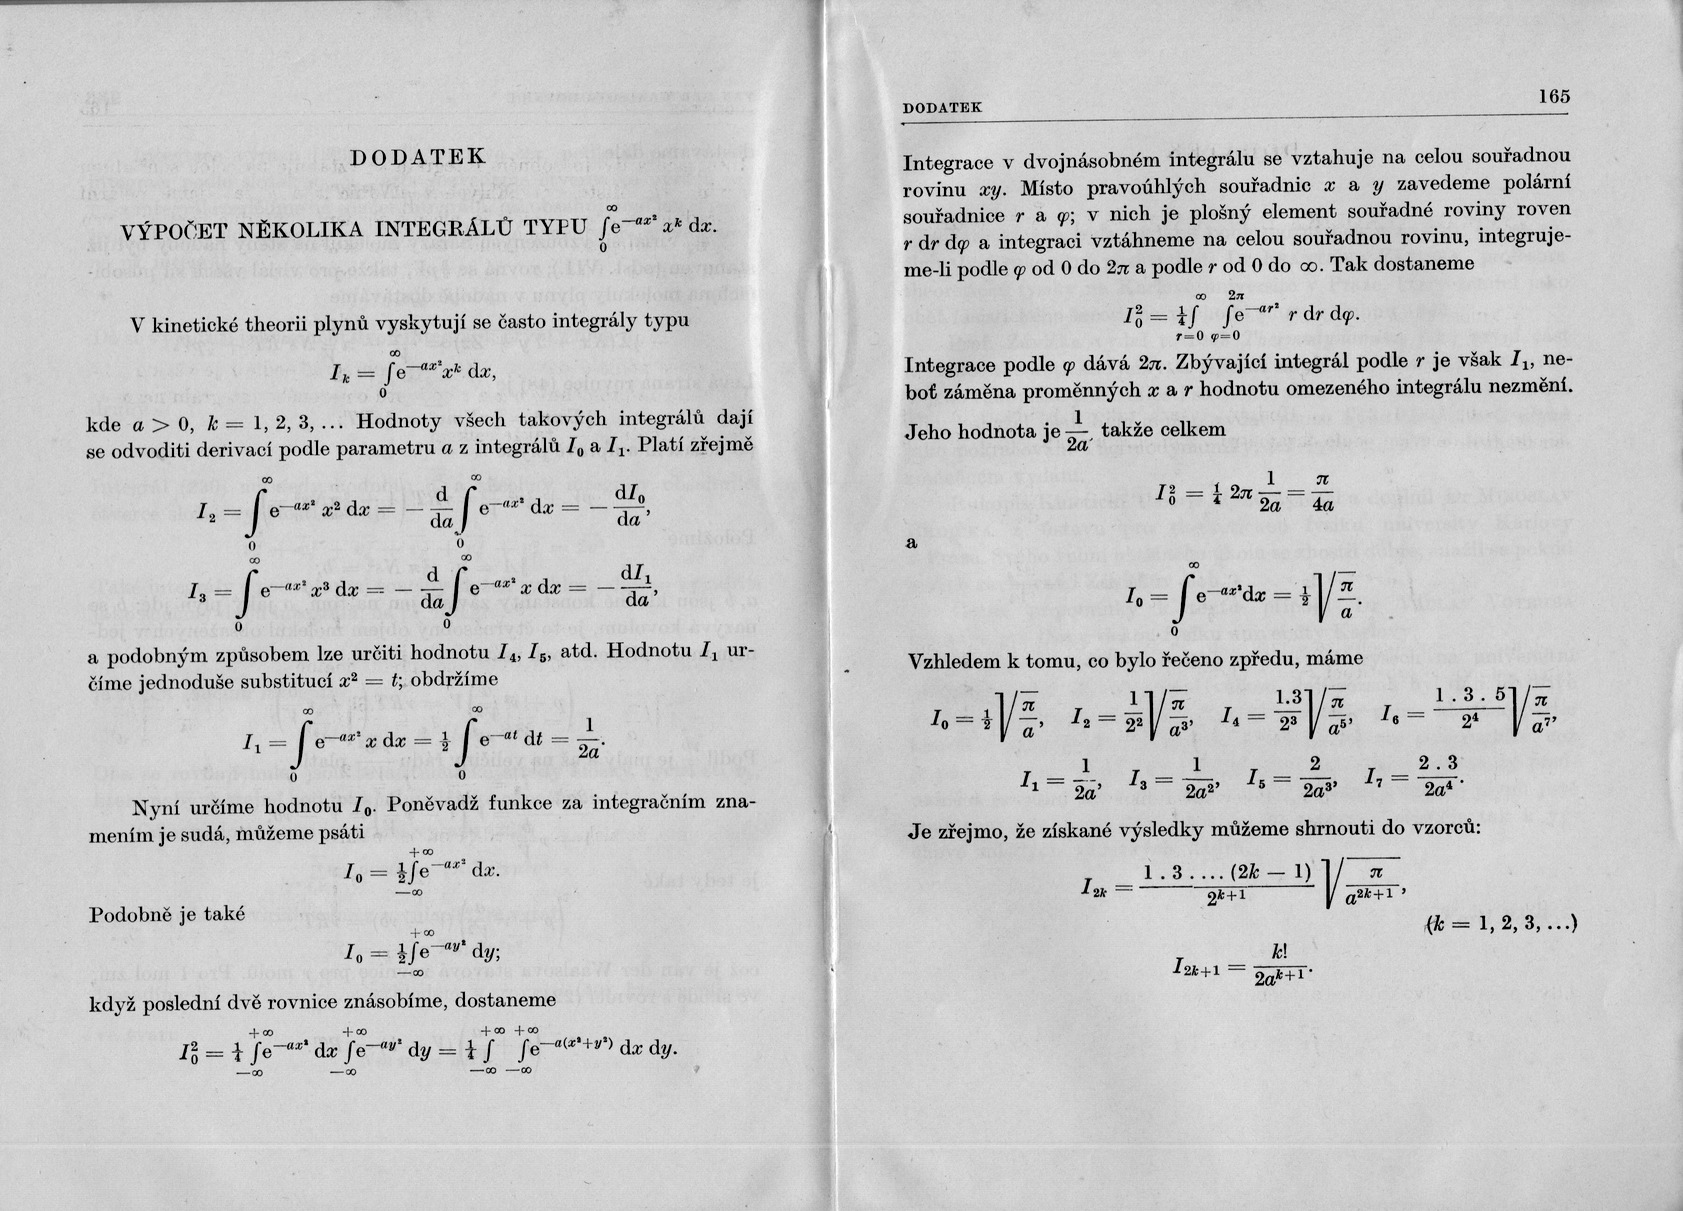 DODATEK
VÝPOČET NĚKOLIKA INTEGRÁLŮ TYPU ∫₀^∞ e^{—ax²} x^k dx.
V kinetické theorii plynů vyskytují se často integrály typu
I_k = ∫₀^∞ e^{—ax²} x^k dx,
kde a > 0, k = 1, 2, 3, ... Hodnoty všech takových integrálů dají
se odvoditi derivací podle parametru a z integrálů I₀ a I₁. Platí zřejmě
I₂ = ∫₀^∞ e^{—ax²} x² dx = — d/da ∫₀^∞ e^{—ax²} dx = — dI₀/da,
I₃ = ∫₀^∞ e^{—ax²} x³ dx = — d/da ∫₀^∞ e^{—ax²} x dx = — dI₁/da,
a podobným způsobem lze určiti hodnotu I₄, I₅, atd. Hodnotu I₁ ur-
číme jednoduše substitucí x² = t; obdržíme
I₁ = ∫₀^∞ e^{—ax²} x dx = ½ ∫₀^∞ e^{—at} dt = 1/2a.
Nyní určíme hodnotu I₀. Poněvadž funkce za integračním zna-
mením je sudá, můžeme psáti
I₀ = ½ ∫_{—∞}^{+∞} e^{—ax²} dx.
Podobně je také
I₀ = ½ ∫_{—∞}^{+∞} e^{—ay²} dy;
když poslední dvě rovnice znásobíme, dostaneme
I₀² = ¼ ∫_{—∞}^{+∞} e^{—ax²} dx ∫_{—∞}^{+∞} e^{—ay²} dy = ¼ ∫_{—∞}^{+∞} ∫_{—∞}^{+∞} e^{—a(x²+y²)} dx dy.
DODATEK 165
Integrace v dvojnásobném integrálu se vztahuje na celou souřadnou
rovinu xy. Místo pravoúhlých souřadnic x a y zavedeme polární
souřadnice r a φ; v nich je plošný element souřadné roviny roven
r dr dφ a integraci vztáhneme na celou souřadnou rovinu, integruje-
me-li podle φ od 0 do 2π a podle r od 0 do ∞. Tak dostaneme
I₀² = ¼ ∫_{r=0}^{∞} ∫_{φ=0}^{2π} e^{—ar²} r dr dφ.
Integrace podle φ dává 2π. Zbývající integrál podle r je však I₁, ne-
boť záměna proměnných x a r hodnotu omezeného integrálu nezmění.
Jeho hodnota je 1/2a, takže celkem
I₀² = ¼ 2π 1/2a = π/4a
a
I₀ = ∫₀^∞ e^{—ax²} dx = ½ √(π/a).
Vzhledem k tomu, co bylo řečeno zpředu, máme
I₀ = ½ √(π/a), I₂ = 1/2² √(π/a³), I₄ = 1.3/2³ √(π/a⁵), I₆ = 1 . 3 . 5/2⁴ √(π/a⁷),
I₁ = 1/2a, I₃ = 1/2a², I₅ = 2/2a³, I₇ = 2 . 3/2a⁴.
Je zřejmo, že získané výsledky můžeme shrnouti do vzorců:
I_{2k} = 1 . 3 . ... (2k — 1)/2^{k+1} √(π/a^{2k+1}),
(k = 1, 2, 3, ...)
I_{2k+1} = k!/2a^{k+1}.